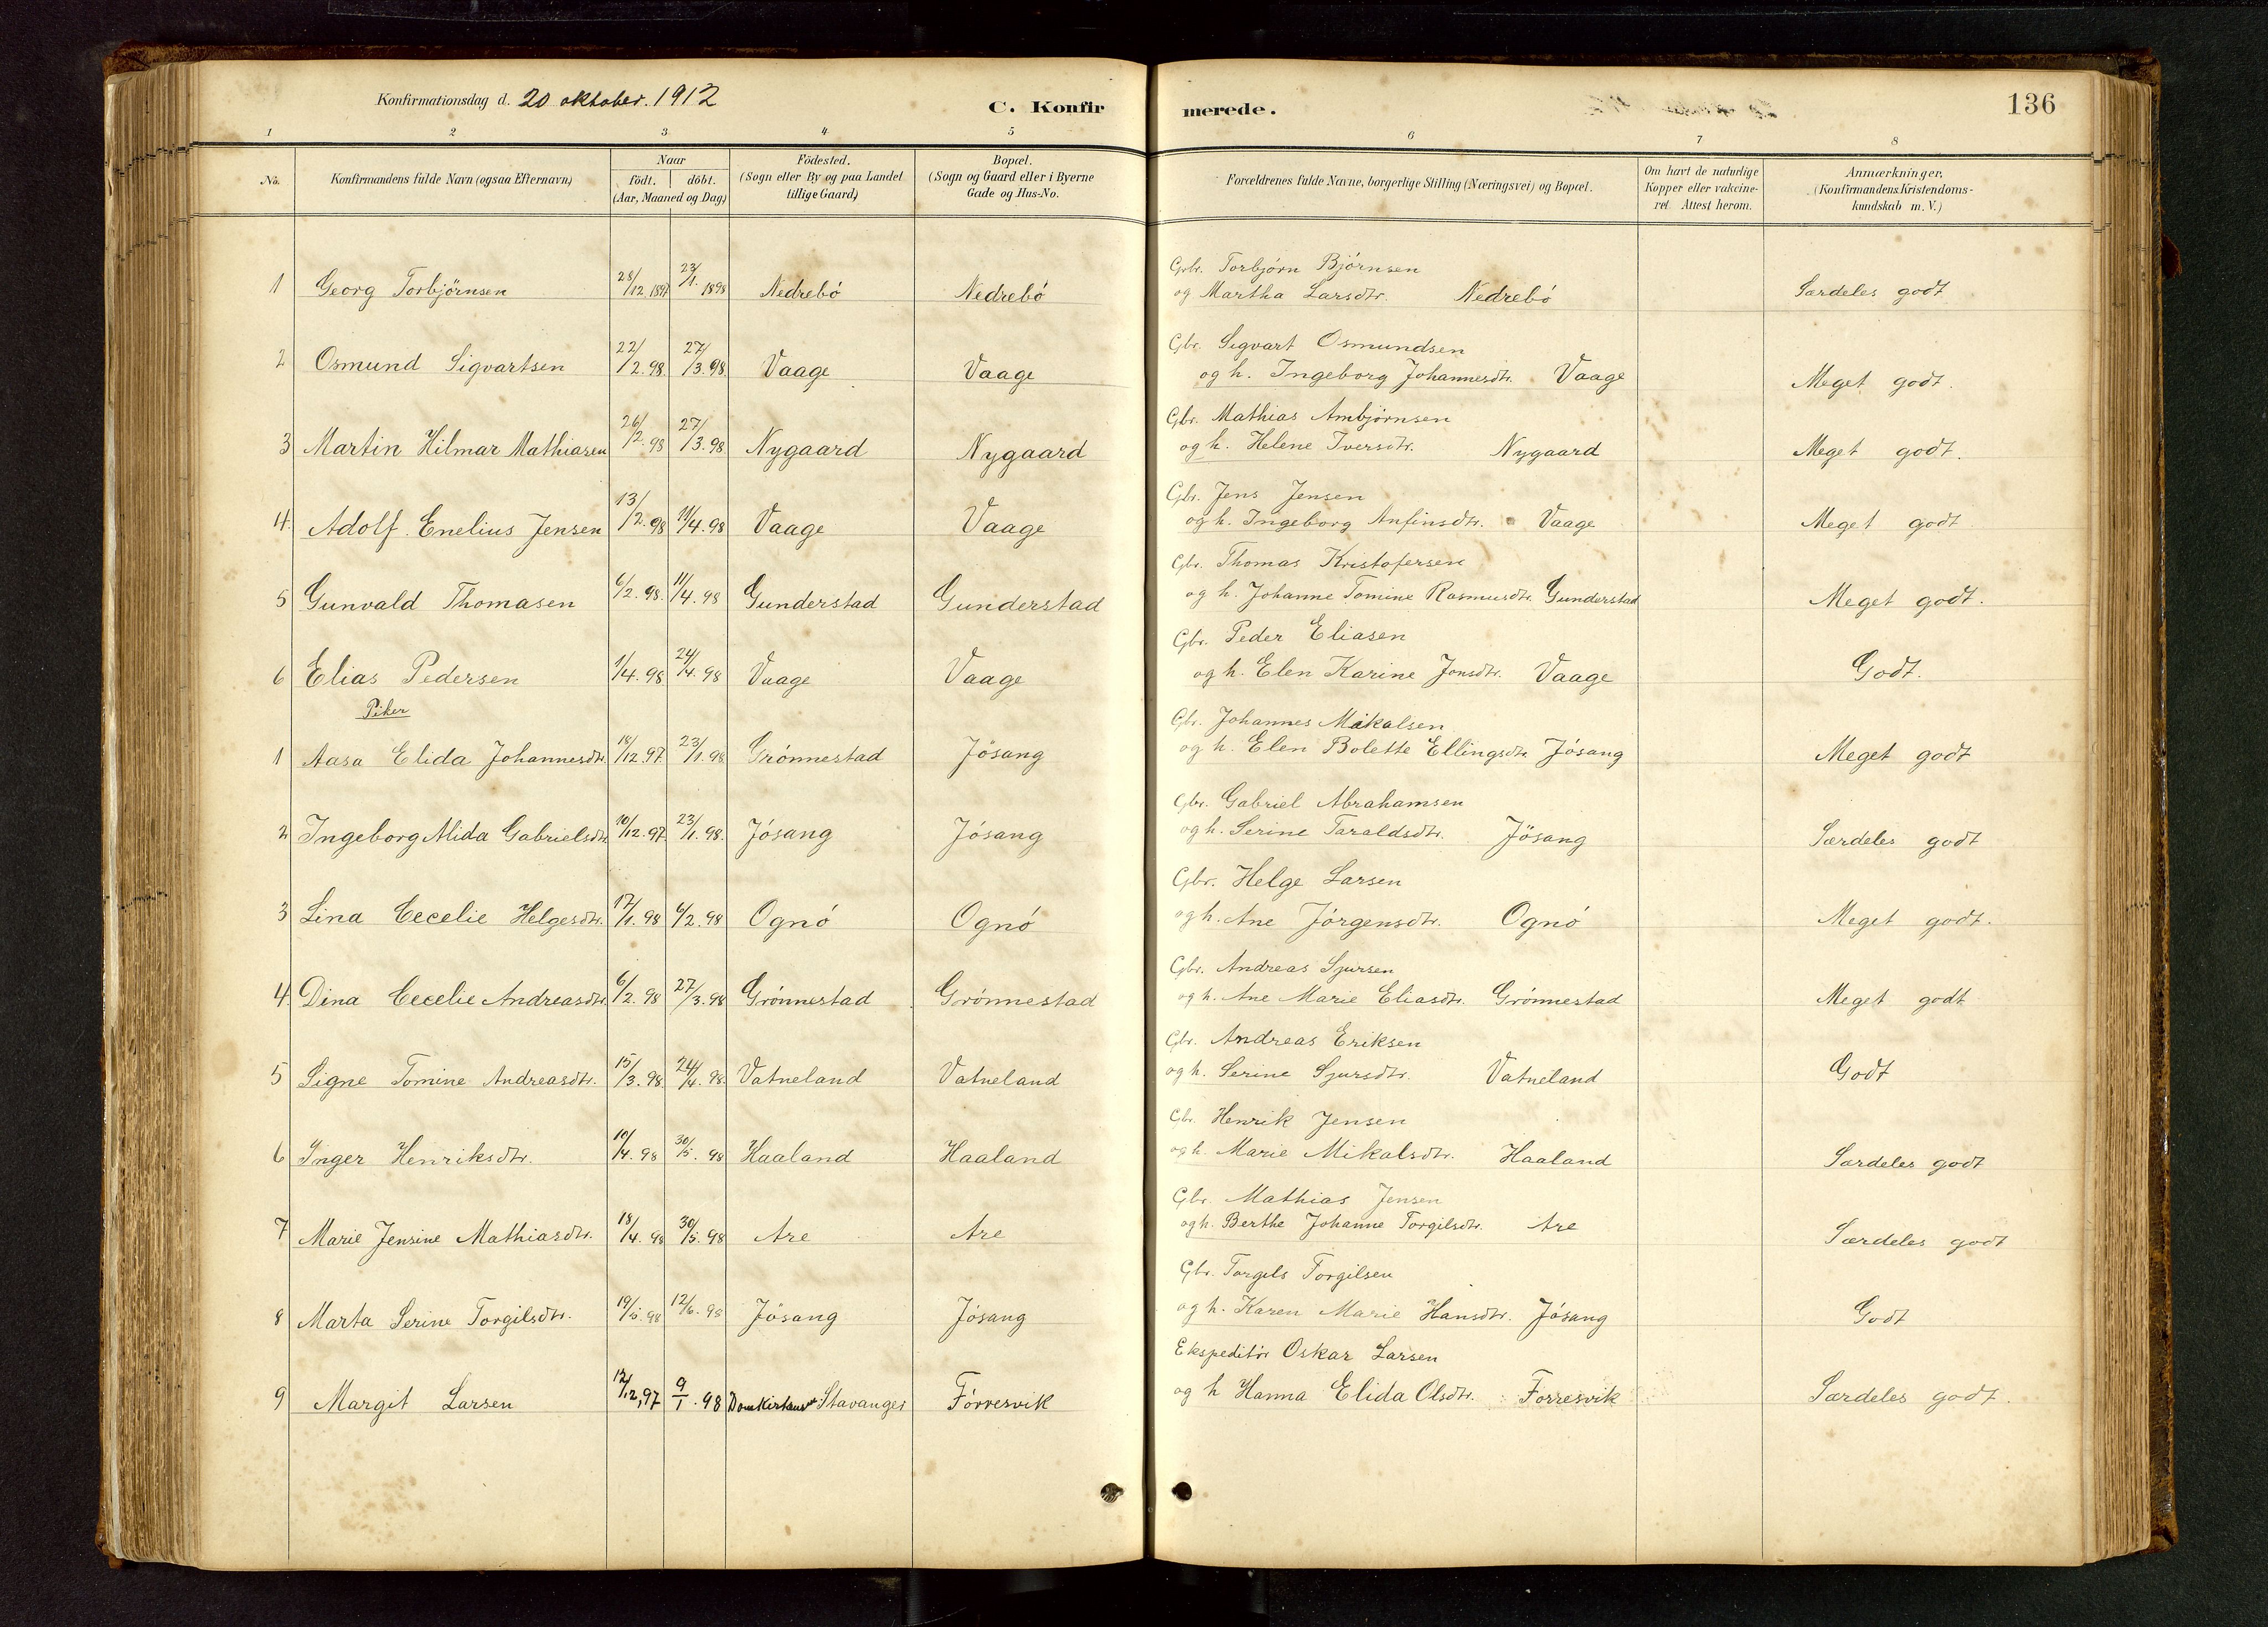 Konfirmationsdag d. 20 oktober. 1912
C. Konfirmerede.
136
1 2 3 4 5 6 7 8
No.
Konfirmandens fulde Navn (ogsaa Efternavn)
Naar födt. döbt. (Aar, Maaned og Dag)
Födested. (Sogn eller By og paa Landet tillige Gaard)
Bopæl. (Sogn og Gaard eller i Byerne Gade og Hus-No.
Forældrenes fulde Navne, borgerlige Stilling (Næringsvei) og Bopæl.
Om havt de naturlige Kopper eller vakcineret Attest herom.
Anmærkninger. (Konfirmandens Kristendomskundskab m. V.)
1 Georg Torbjörnsen 28/12 1897 23/1. 1898 Nedrebö Nedrebö Gbr. Torbjörn Björnsen
og Martha Larsdtr. Nedrebö Særdeles godt
2 Osmund Sigvartsen 22/2.98. 27/3.98. Vaage Vaage Gbr. Sigvart Osmundsen
og h. Ingeborg Johannesdtr. Vaage Meget godt.
3 Martin Hilmar Mathiasen 26/2.98 27/3.98. Nygaard Nygaard Gbr. Mathias Ambjörnsen
og h. Helene Iversdtr. Nygaard Meget godt.
4. Adolf Enelius Jensen 13/2.98 11/4.98 Vaage Vaage Gbr. Jens Jensen
og h. Ingeborg Anfinsdtr. Vaage Meget godt
5 Gunvald Thomasen 6/2.98. 11/4.98 Gunderstad Gunderstad Gbr. Thomas Kristofersen
og h. Johanne Tomine Rasmusdtr. Gunderstad Meget godt.
6 Elias Pedersen 1/4.98 24/4.98 Vaage Vaage Gbr. Peder Eliasen
og h. Elen Karine Jonsdtr. Vaage Godt.
Piker
1 Aasa Elida Johannesdtr. 18/12.97. 23/1.98. Grönnestad Jösang Gbr. Johannes Mikalsen
og h. Elen Bolette Ellingsdtr. Jösang Meget godt
2 Ingeborg Alida Gabrielsdtr. 10/12.97. 23/1.98. Jösang Jösang Gbr. Gabriel Abrahamsen
og h. Serine Taraldsdtr. Jösang Særdeles godt
3 Lina Cecelie Helgesdtr. 17/1.98 6/2.98 Ognö Ognö Gbr. Helge Larsen
og h. Ane Jörgensdtr. Ognö Meget godt.
4 Dina Cecelie Andreasdtr. 6/2.98 27/3.98 Grönnestad Grönnestad Gbr. Andreas Sjursen
og h. Ane Marie Eliasdtr. Grönnestad Meget godt
5 Signe Tomine Andreasdtr. 15/3.98. 24/4.98. Vatneland Vatneland Gbr. Andreas Eriksen
og h. Serine Sjursdtr. Vatneland Godt
6 Inger Henriksdtr. 10/4.98 30/5.98 Haaland Haaland Gbr. Henrik Jensen
og h. Marie Mikalsdtr. Haaland Særdeles godt
7 Marie Jensine Mathiasdtr. 18/4.98 30/5.98 Are Are Gbr. Mathias Jensen
og h. Berthe Johanne Torgilsdtr. Are Særdeles godt
8 Marta Serine Torgilsdtr. 19/5.98 12/6.98 Jösang Jösang Gbr. Torgils Torgilsen
og h. Karen Marie Hansdtr. Jösang Godt
9 Margit Larsen 12/12,97 9/1.98 Stavanger Förresvik Ekspeditör Oskar Larsen
og h Hanna Elida Olsdtr. Förresvik Særdeles godt.